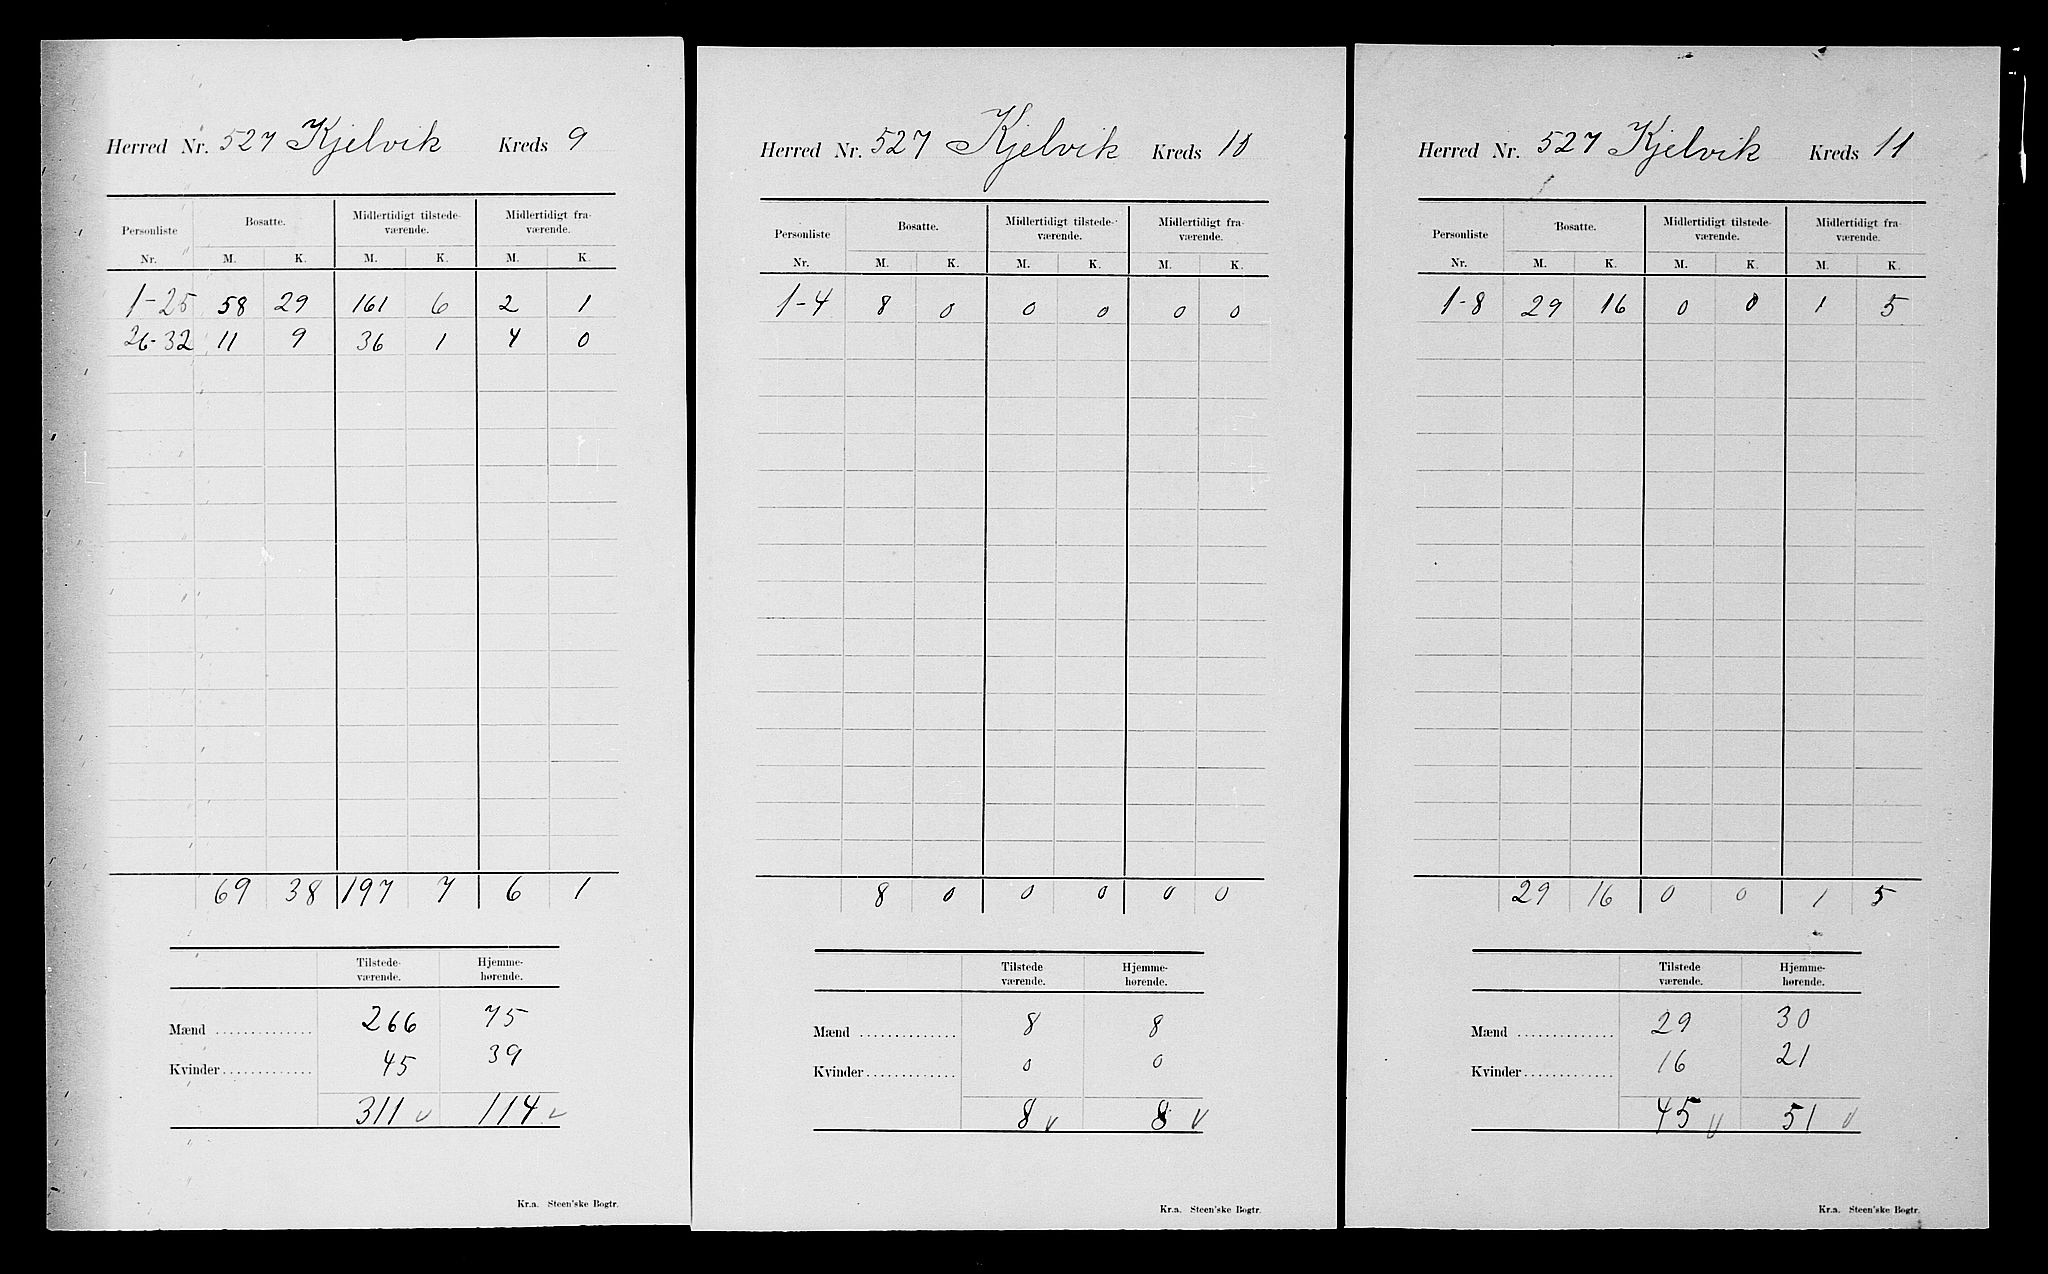 Herred Nr. 527 Kjelvik Kreds 9
Personliste Bosatte. Midlertidigt tilstede-værende. Midlertidigt fra-værende.
Nr. M. K. M. K. M. K.
1-25 58 29 161 6 2 1
26-32 11 9 36 1 4 0
69 38 197 7 6 1
Tilstede-værende. Hjemme-hørende.
Mænd .............. 266 75
Kvinder ............. 45 39
311 v 114 v
Kr.a. Steen'ske Bogtr.
Herred Nr. 527 Kjelvik Kreds 10
Personliste Bosatte. Midlertidigt tilstede-værende. Midlertidigt fra-værende.
Nr. M. K. M. K. M. K.
1-4 8 0 0 0 0 0
8 0 0 0 0 0
Tilstede værende. Hjemme-hørende.
Mænd .............. 8 8
Kvinder ............. 0 0
8 v 8 v
Kr.a. Steen'ske Bogtr.
Herred Nr. 527 Kjelvik Kreds 11
Personliste Bosatte. Midlertidigt tilstede-værende. Midlertidigt fra-værende.
Nr. M. K. M. K. M. K.
1-8 29 16 0 0 1 5
29 16 0 0 1 5
Tilstede værende. Hjemme-hørende.
Mænd .............. 29 30
Kvinder ............. 16 21
45 v 51 v
Kr.a. Steen'ske Bogtr.